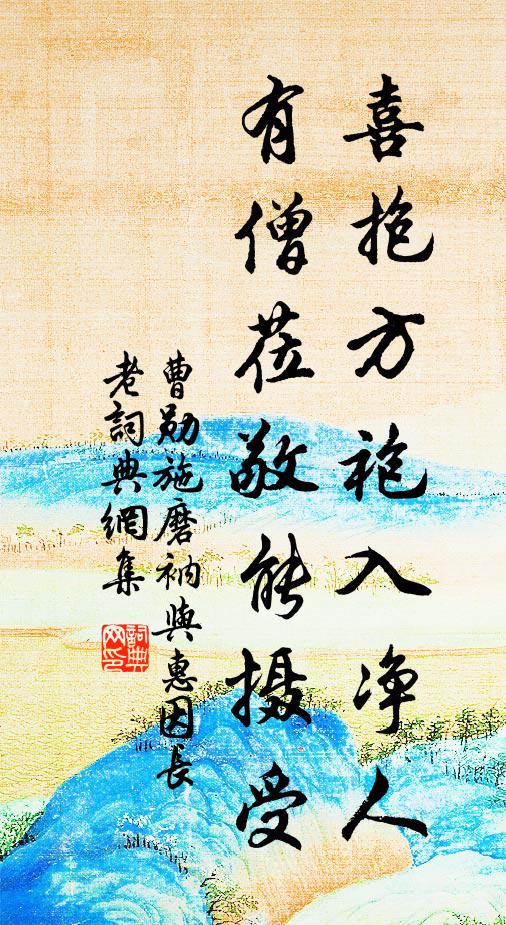 喜抱方袍入净人
有僧莅敬能摄受
曹勋施磨衲與惠因長
老詞典網集
詞典网印